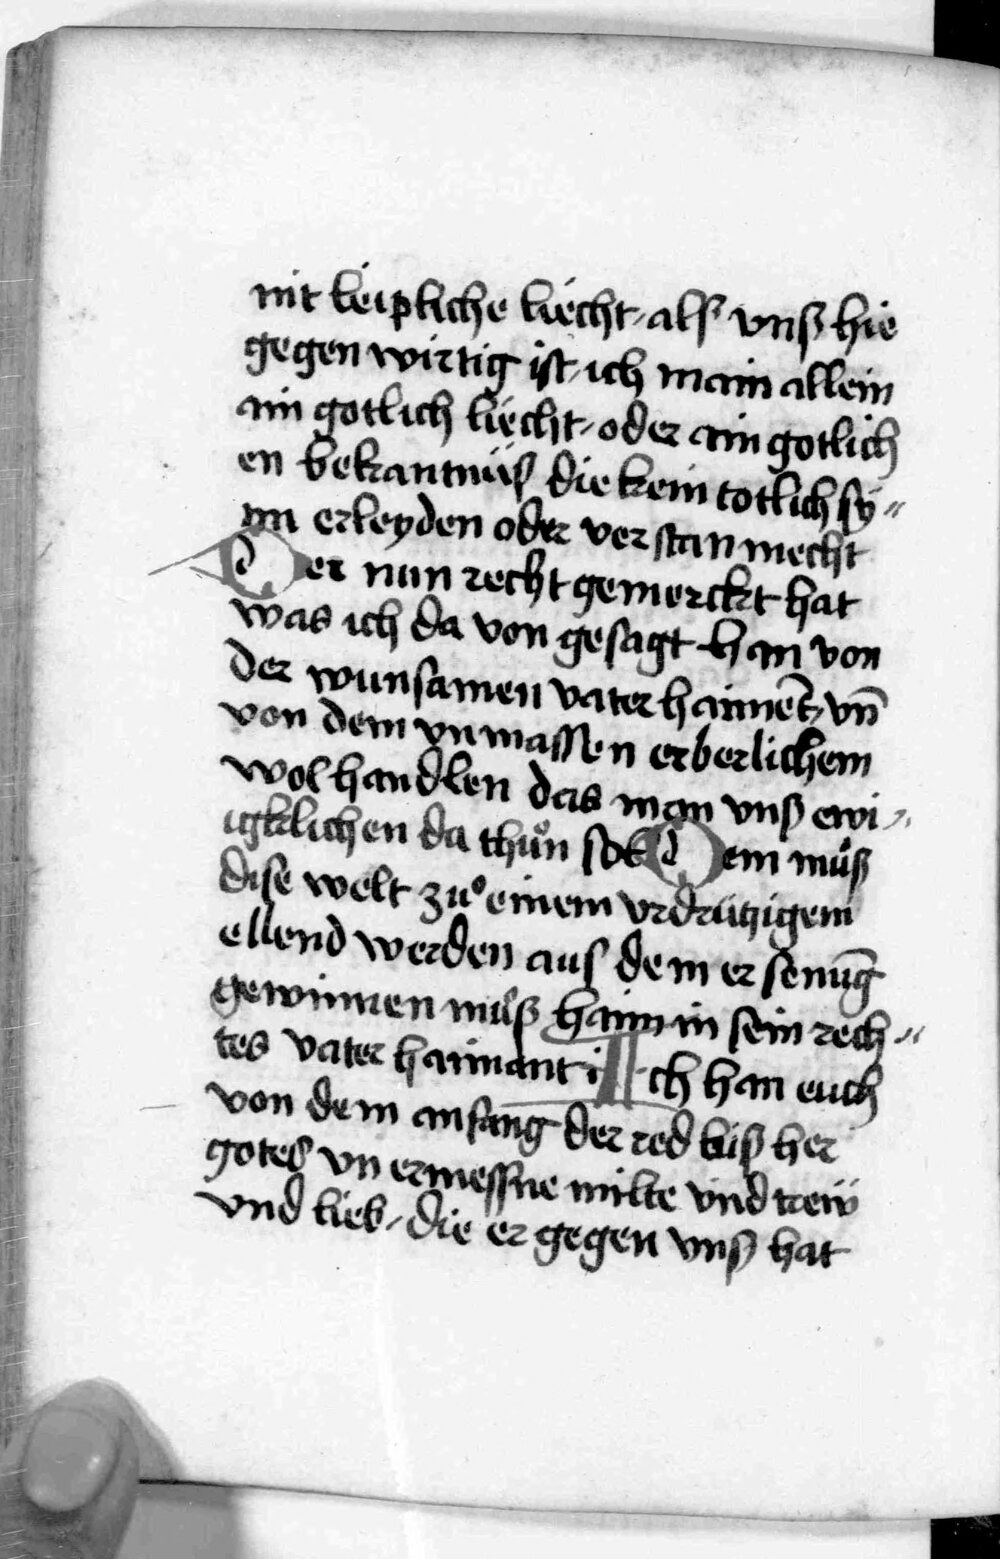 nit leipliche liecht, als vnß hie
gegen wirtig ist, ich main allein
ain gotlich liecht, oder ain gotlich
en bekantnüs die kein totlich sÿ„
nn erleyden oder verstan mecht
Der nun recht gemerckt hat
was ich da von gesagt han von
der wunsamen vater haimēt, vn̄
von dem vnmassen erberlichem
wolhandlen das man vnß ewi„
igklichen da thuͦn sol Dem muͦß
dise welt zuͦ einem vrdrützigem
ellend werden aus dem er senūg
gewinnen muͦß haim in sein rech„
tes vater haimant ich han euch
von dem anfang der red biß her
gotes vn ermessne milte vnd trew
vnd lieb, die er gegen vnß hat